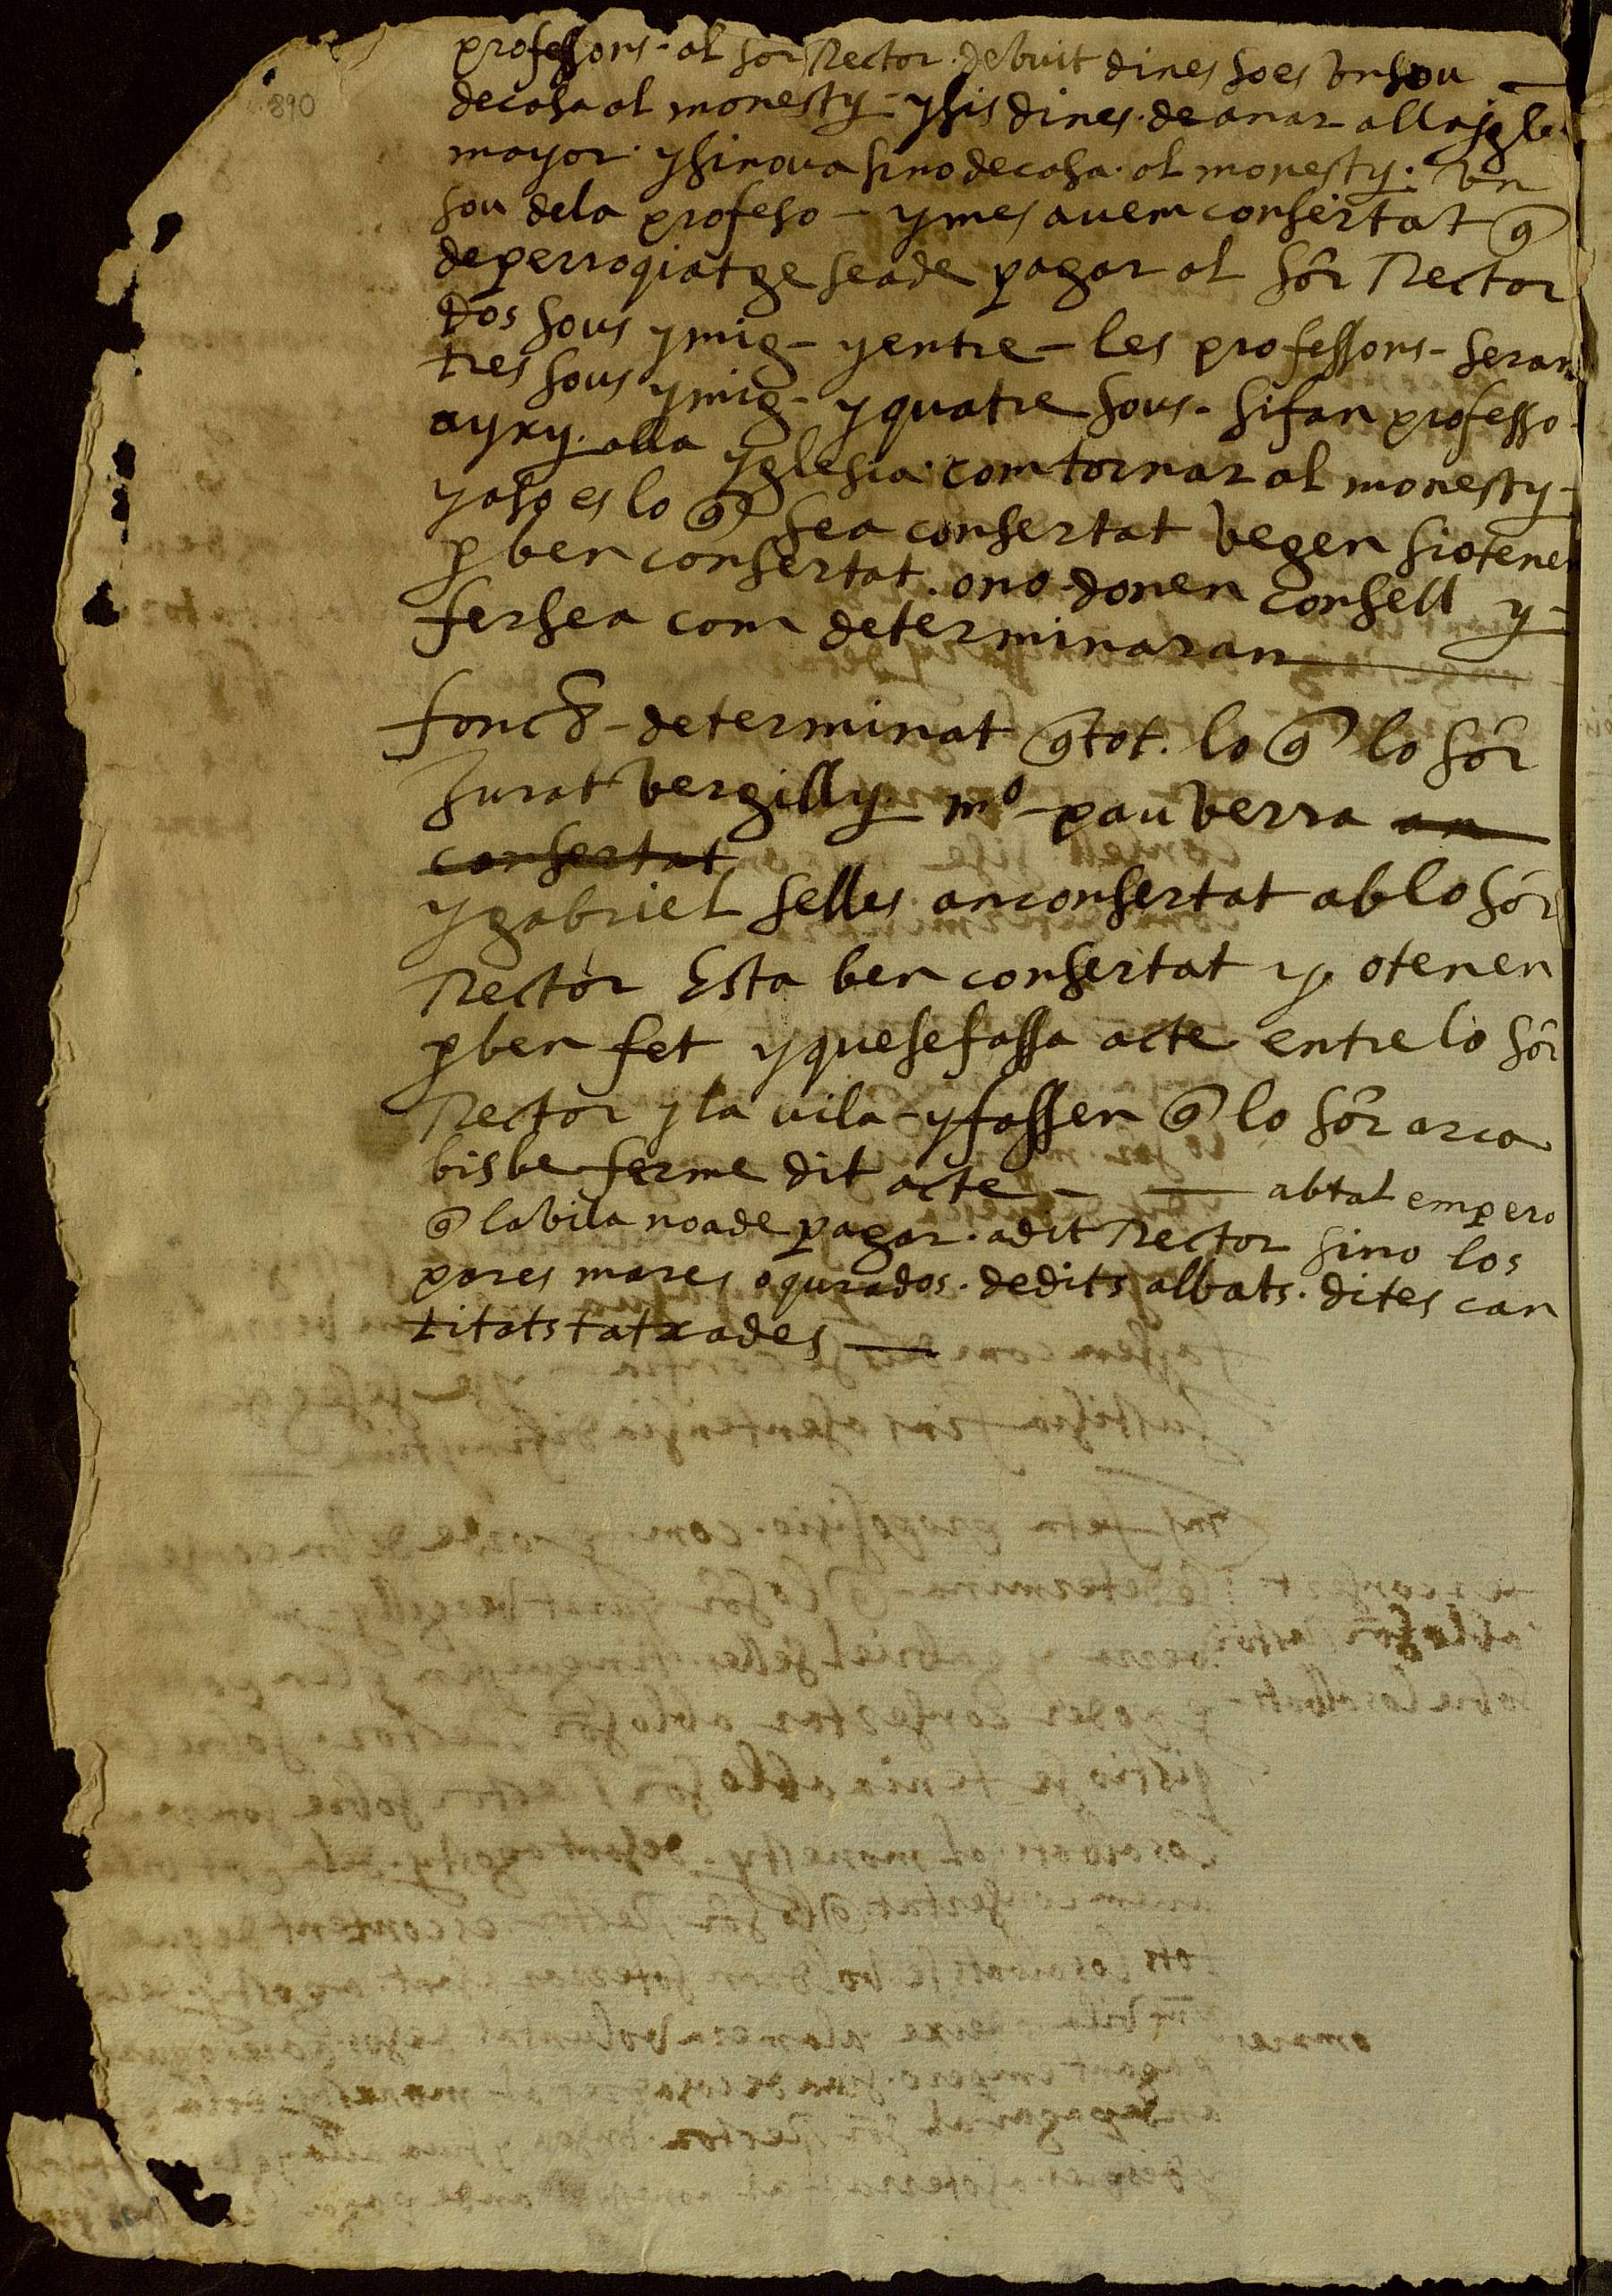 professons - al sor Rector de buit dines so es un sou
890
de casa al monesty - y sis dines de anar alla ygle
mayor y si no va sino de casa al monesty. un
sou de la profeso - y mes avem consertat q̃
de perroqiatge sea de pagar al sôr Rector
dos sous y mig - y entre - les professons - seran
tres sous y mig - y quatre sous - si fan professo
ayxy alla yglesia com tornar al monesty -
y aso es lo q̃ sea consertat vegen si o tenen
p ben consertat o no donen consell y -
fersea com determinaran
fonch - determinat q̃ tot lo q̃ lo sôr
Jurat Vergilly mº - pau verra an
consertat
y gabriel selles an consertat ab lo sôr
Rector Esta ben consertat y o tenen
p ben fet y que se fassa acte entre lo sôr
Rector y la vila - y fassen q̃ lo sôr arca
bisbe ferme dit acte - — ab tal empero
q̃ la vila noa de pagar a dit Rector sino los
pares mares o qurados de dits albats dites can
titats tatxades —